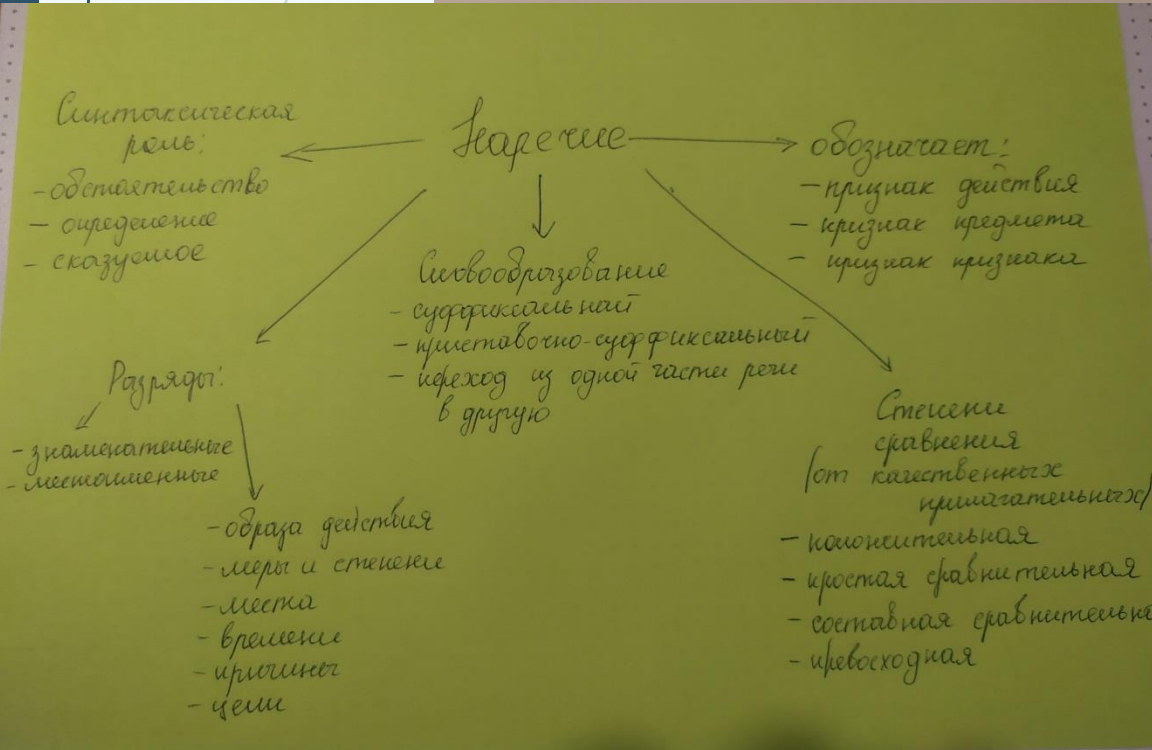 Наречие
Синтаксическая
роль:
- обстоятельство
- определение
- сказуемое
обозначает:
- признак действия
- признак предмета
- признак признака
Словообразование
- суффиксальный
- приставочно-суффиксальный
- переход из одной части речи
в другую
Разряды:
- знаменательные
- местоименные
- образа действия
- меры и степени
- места
- времени
- причины
- цели
Степени
сравнения
(от качественных
прилагательных)
- положительная
- простая сравнительная
- составная сравнительна
- превосходная